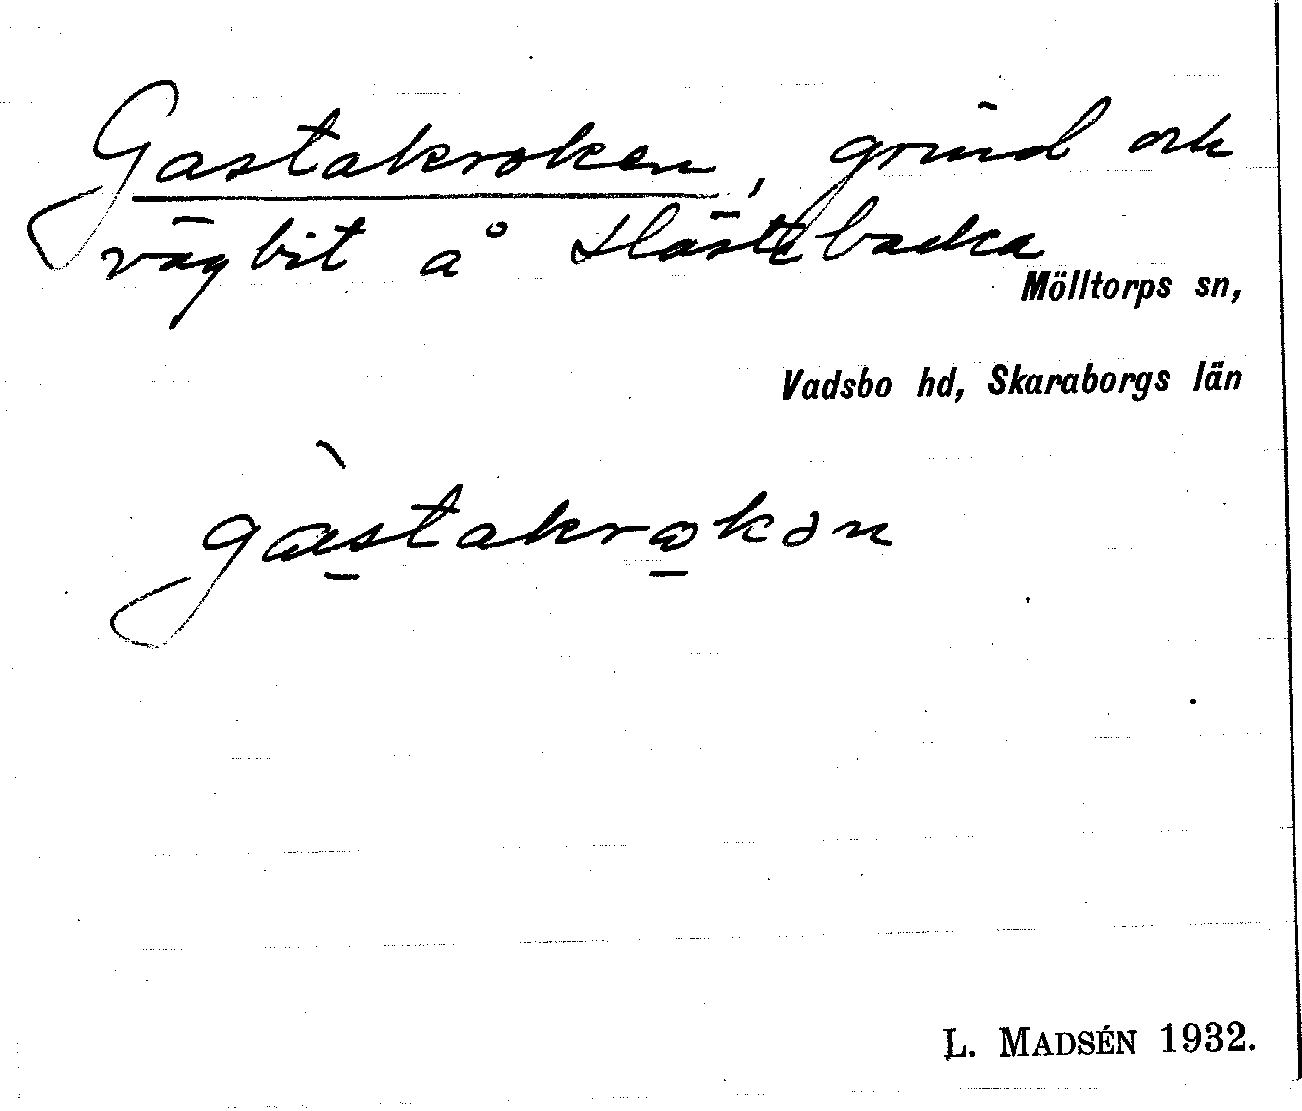 Gastakroken, grind och
vägbit å Hästebacka
Mölltorps sn,
Vadsbo hd, Skaraborgs län
gàstakrokən
L. MADSÉN 1932.